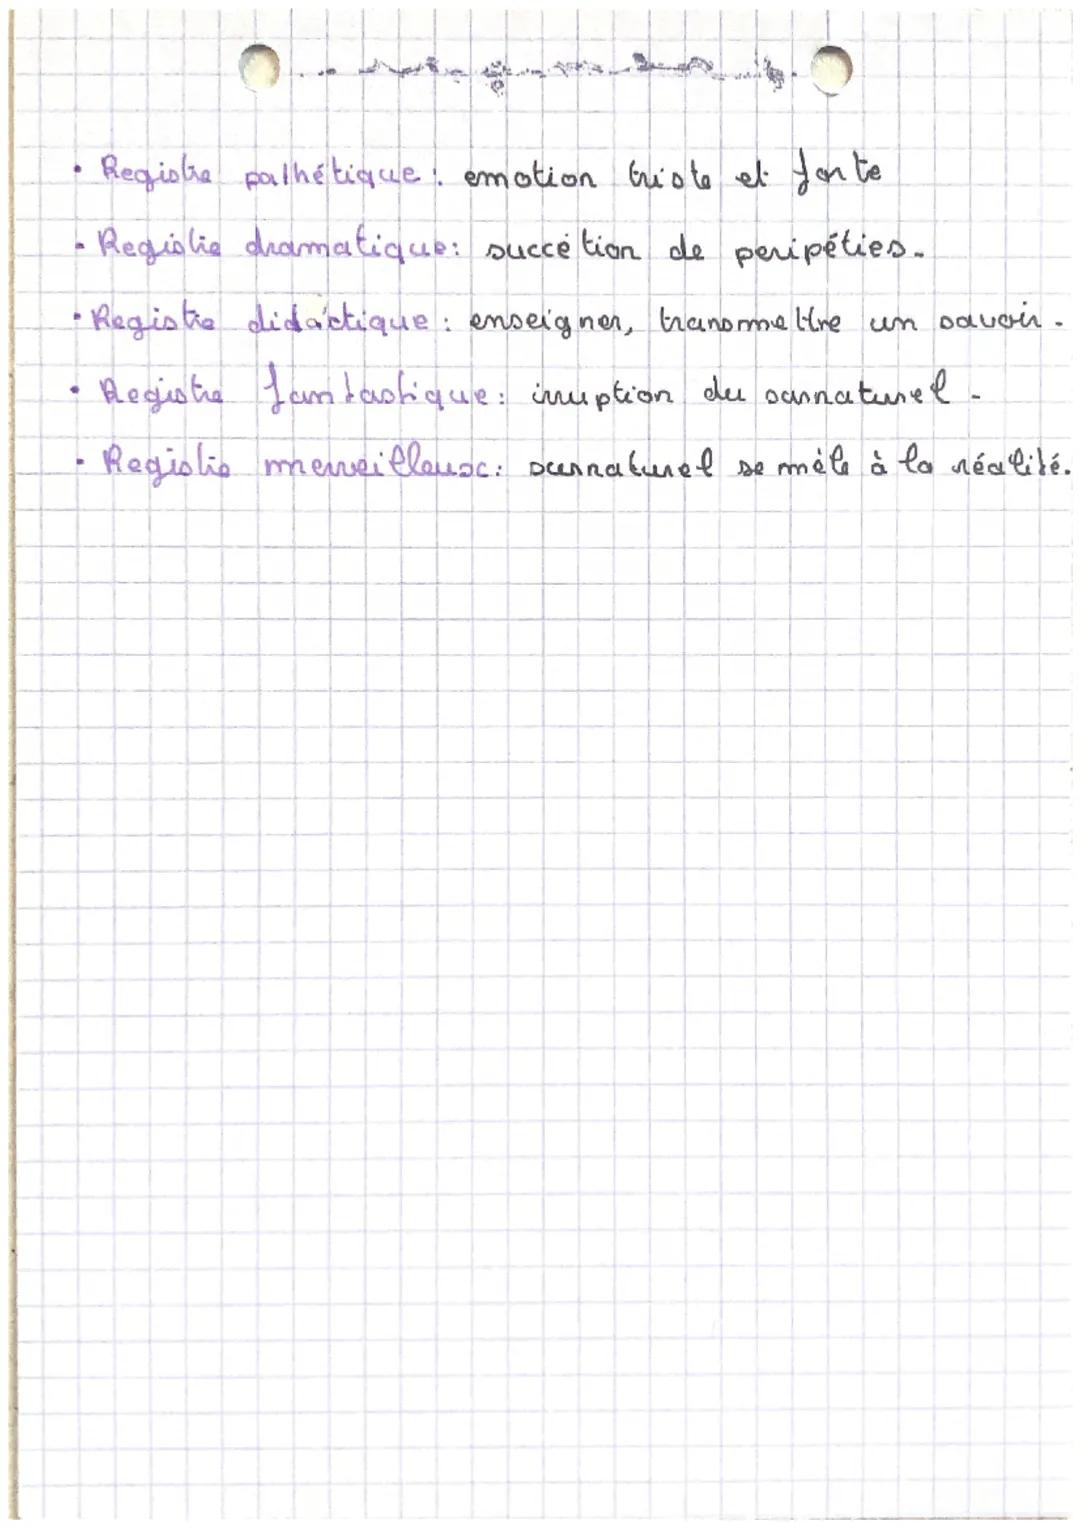 • Registre pathétique : emotion triste et forte
• Registre dramatique : succétion de peripéties.
• Registre didactique : enseigner, transmettre un savoir.
• Registre fantastique : irruption du surnaturel.
• Registre merveilleux : surnaturel se mêle à la réalité.